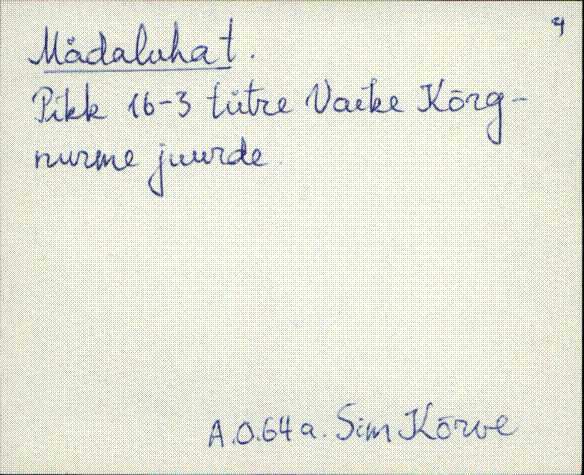 4
Mädaluhat.
Pikk 16-3 tütre Vaike Kõrg-
nurme juurde.
A.O.64a. Sim Kõrve